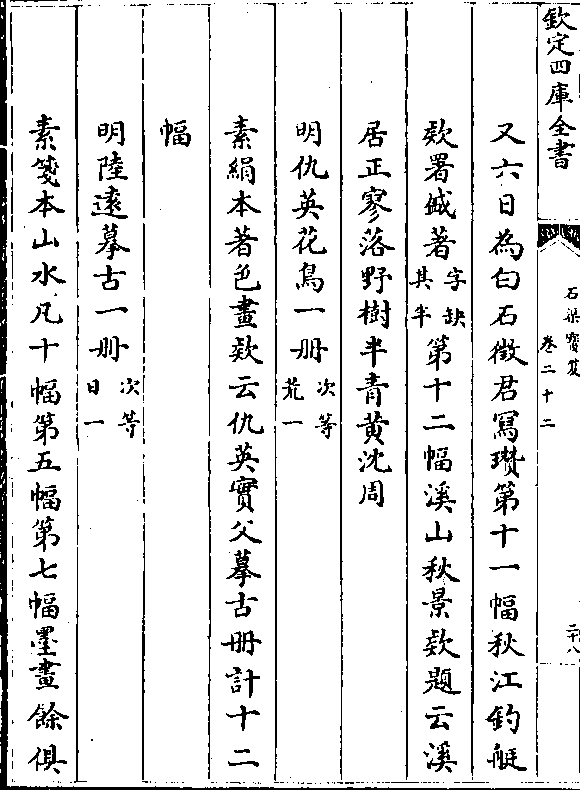 欽定四庫全書
石渠寳笈
卷二十二
二十八
又六日為白石徵君寫瓚第十一幅秋江釣艇
欵署瑊著字缺其半第十二幅溪山秋景欵題云溪
居正寥落野樹半青黄沈周
明仇英花鳥一冊次等荒一
素絹本著色畫欵云仇英實父摹古冊計十二
幅
明陸遠摹古一冊次等日一
素箋本山水凡十幅第五幅第七幅墨畫餘俱